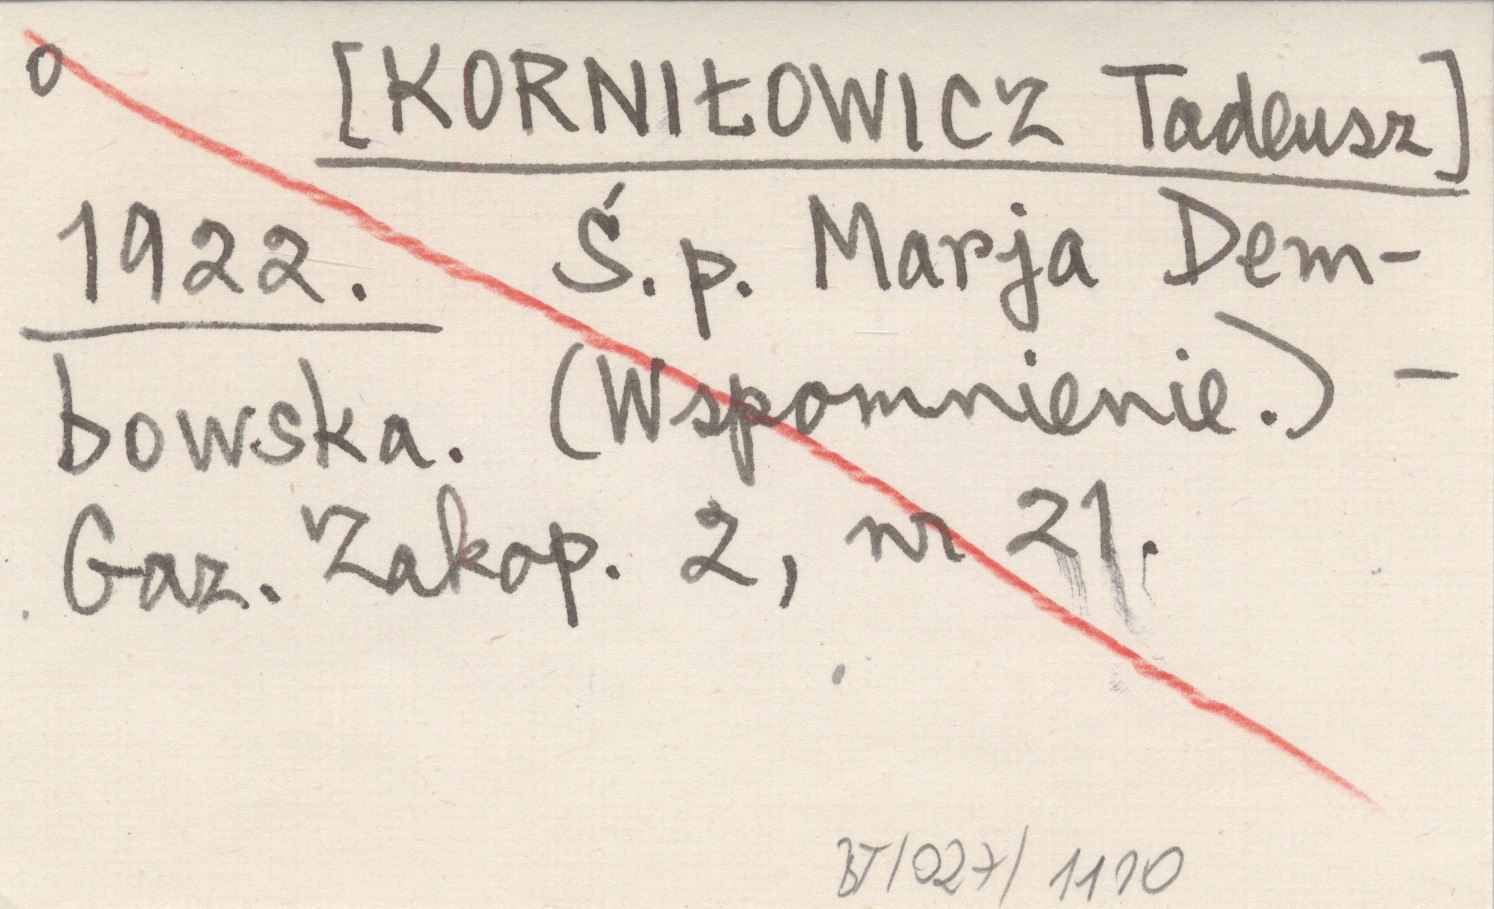 o [KORNIŁOWICZ Tadeusz]
1922. Ś.p. Marja Dem-
bowska. (Wspomnienie.) –
Gaz. Zakop. 2, nr 21.
BT/027/1110